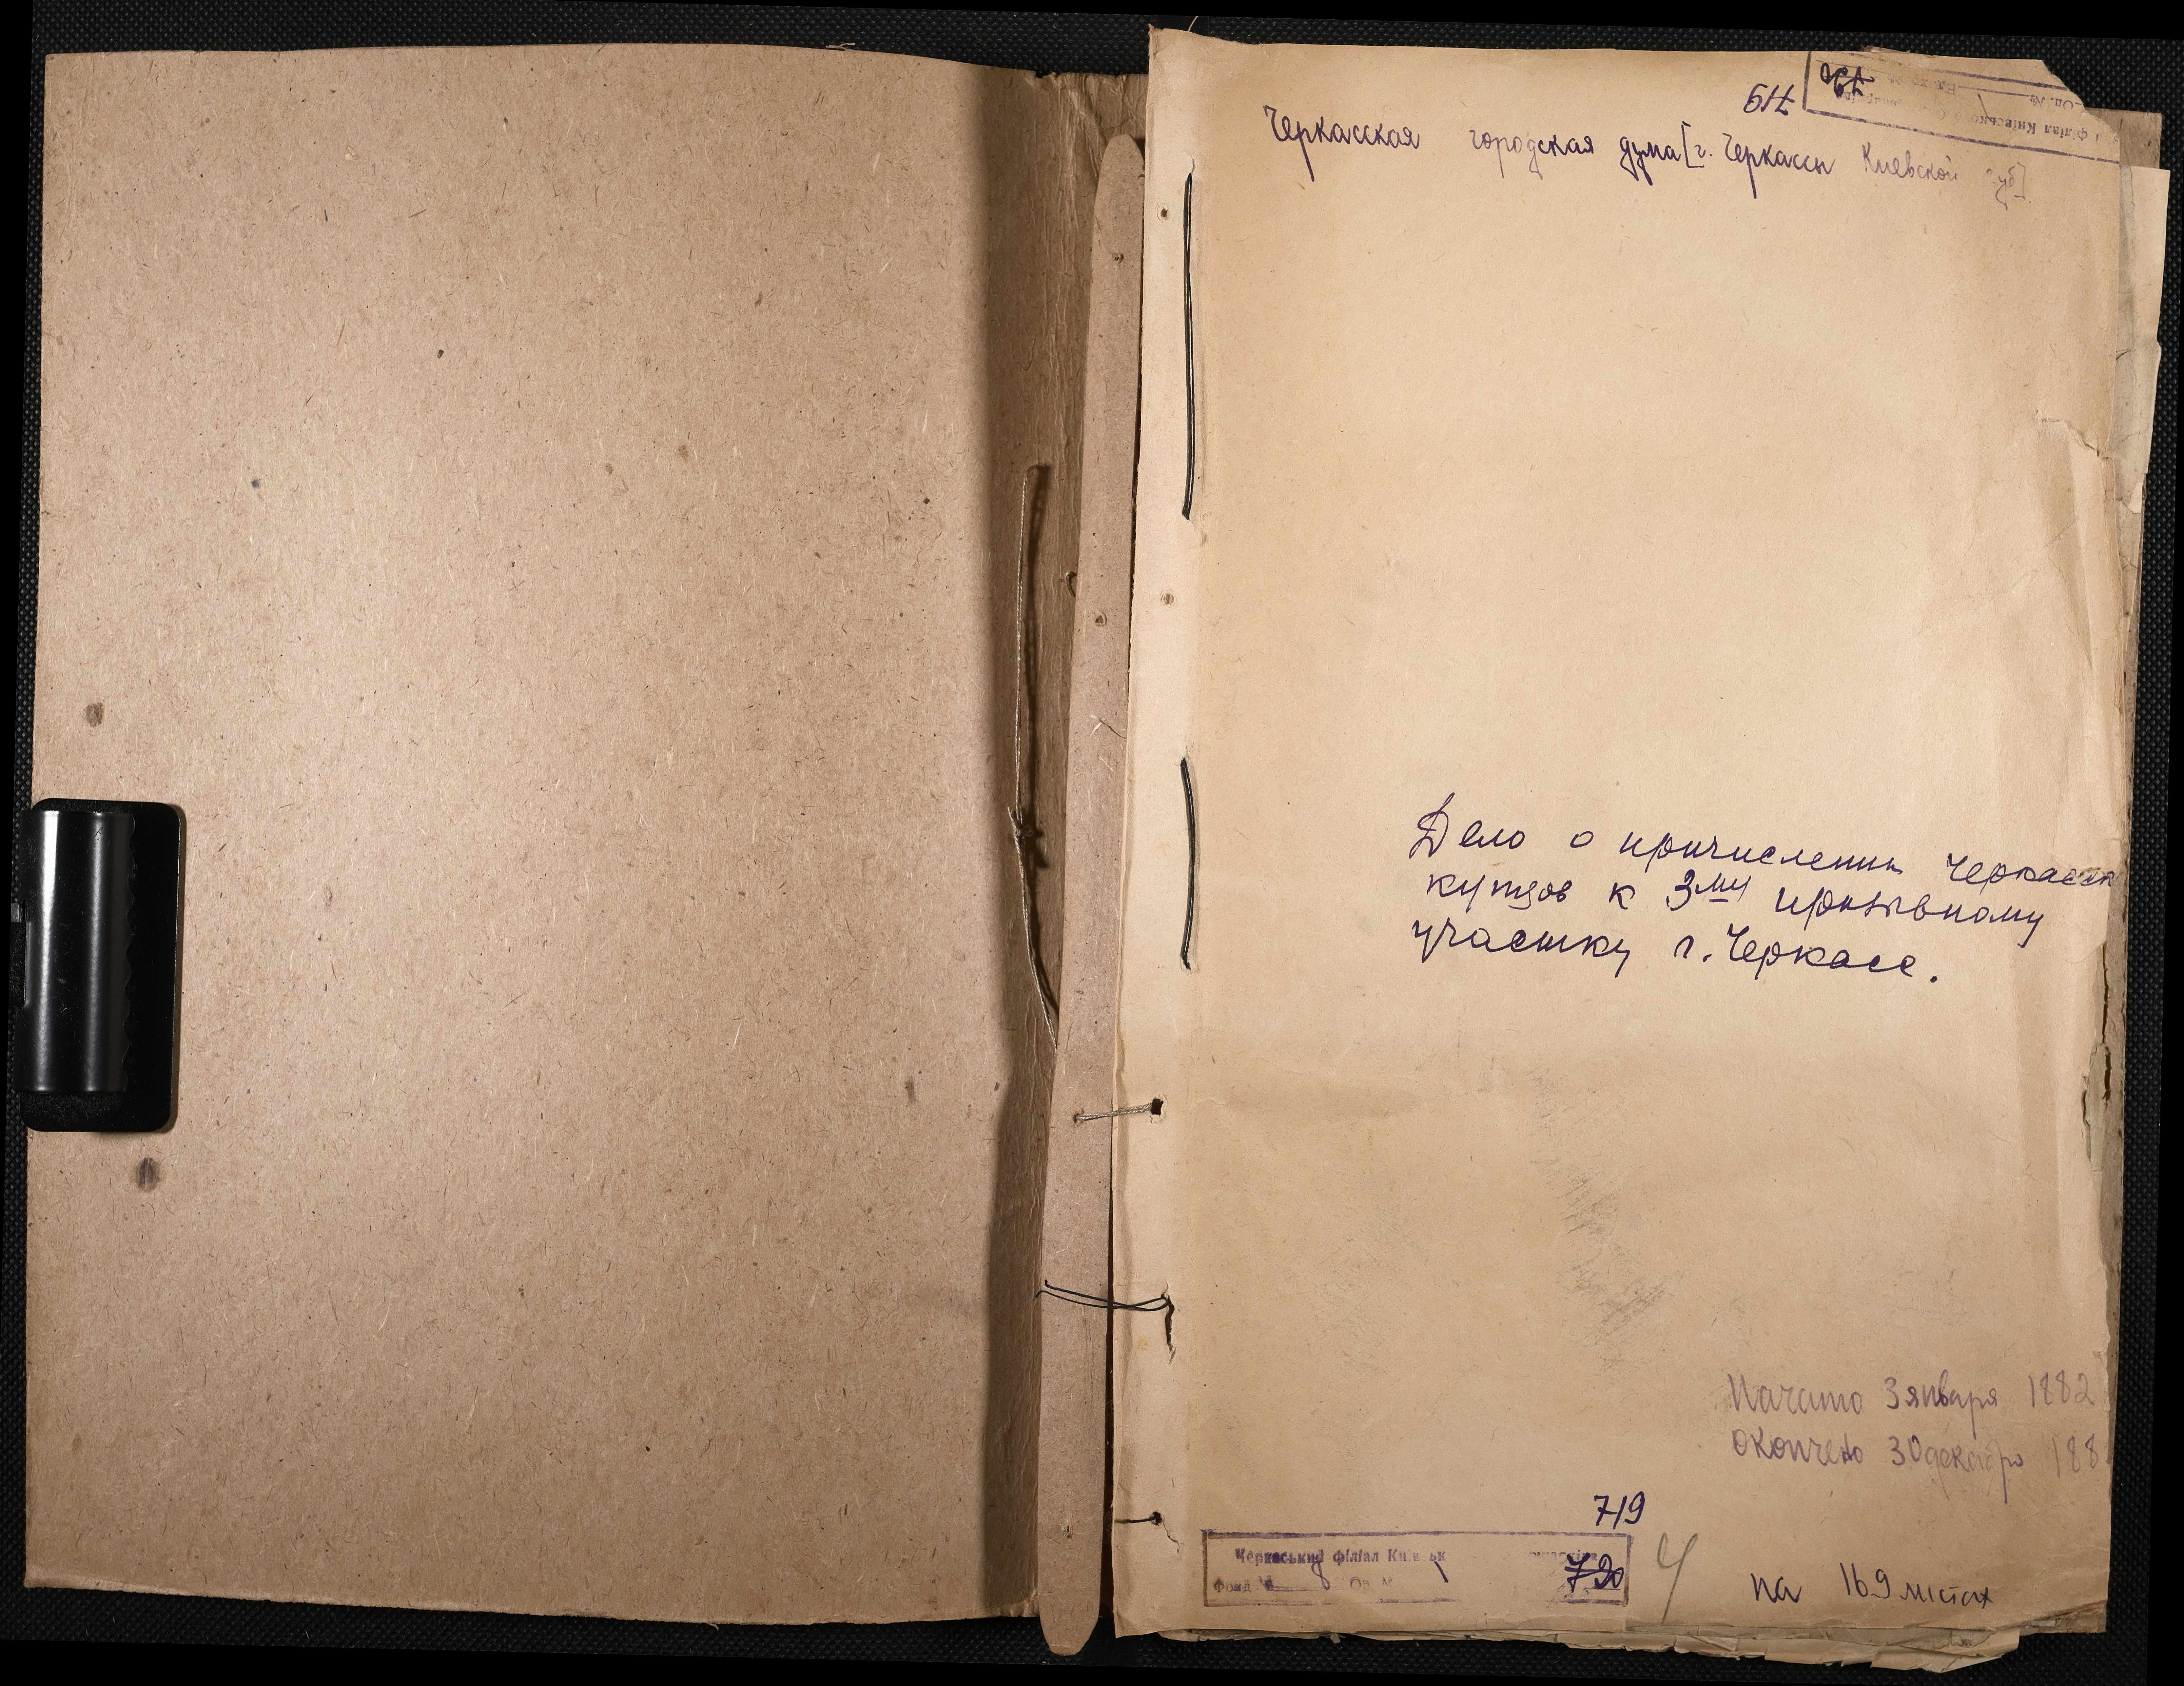 719
Черкасская городская дума [г. Черкассы Киевской губ]
Дело о причислении черкасск
купцов к 3му призывному
участку г. Черкасс.
Начато 3 января 1882
Окончено 30 декабря 188
719
Черкаський філіал
Фонд № 8 Оп. № 1 720
4
на 169 листах